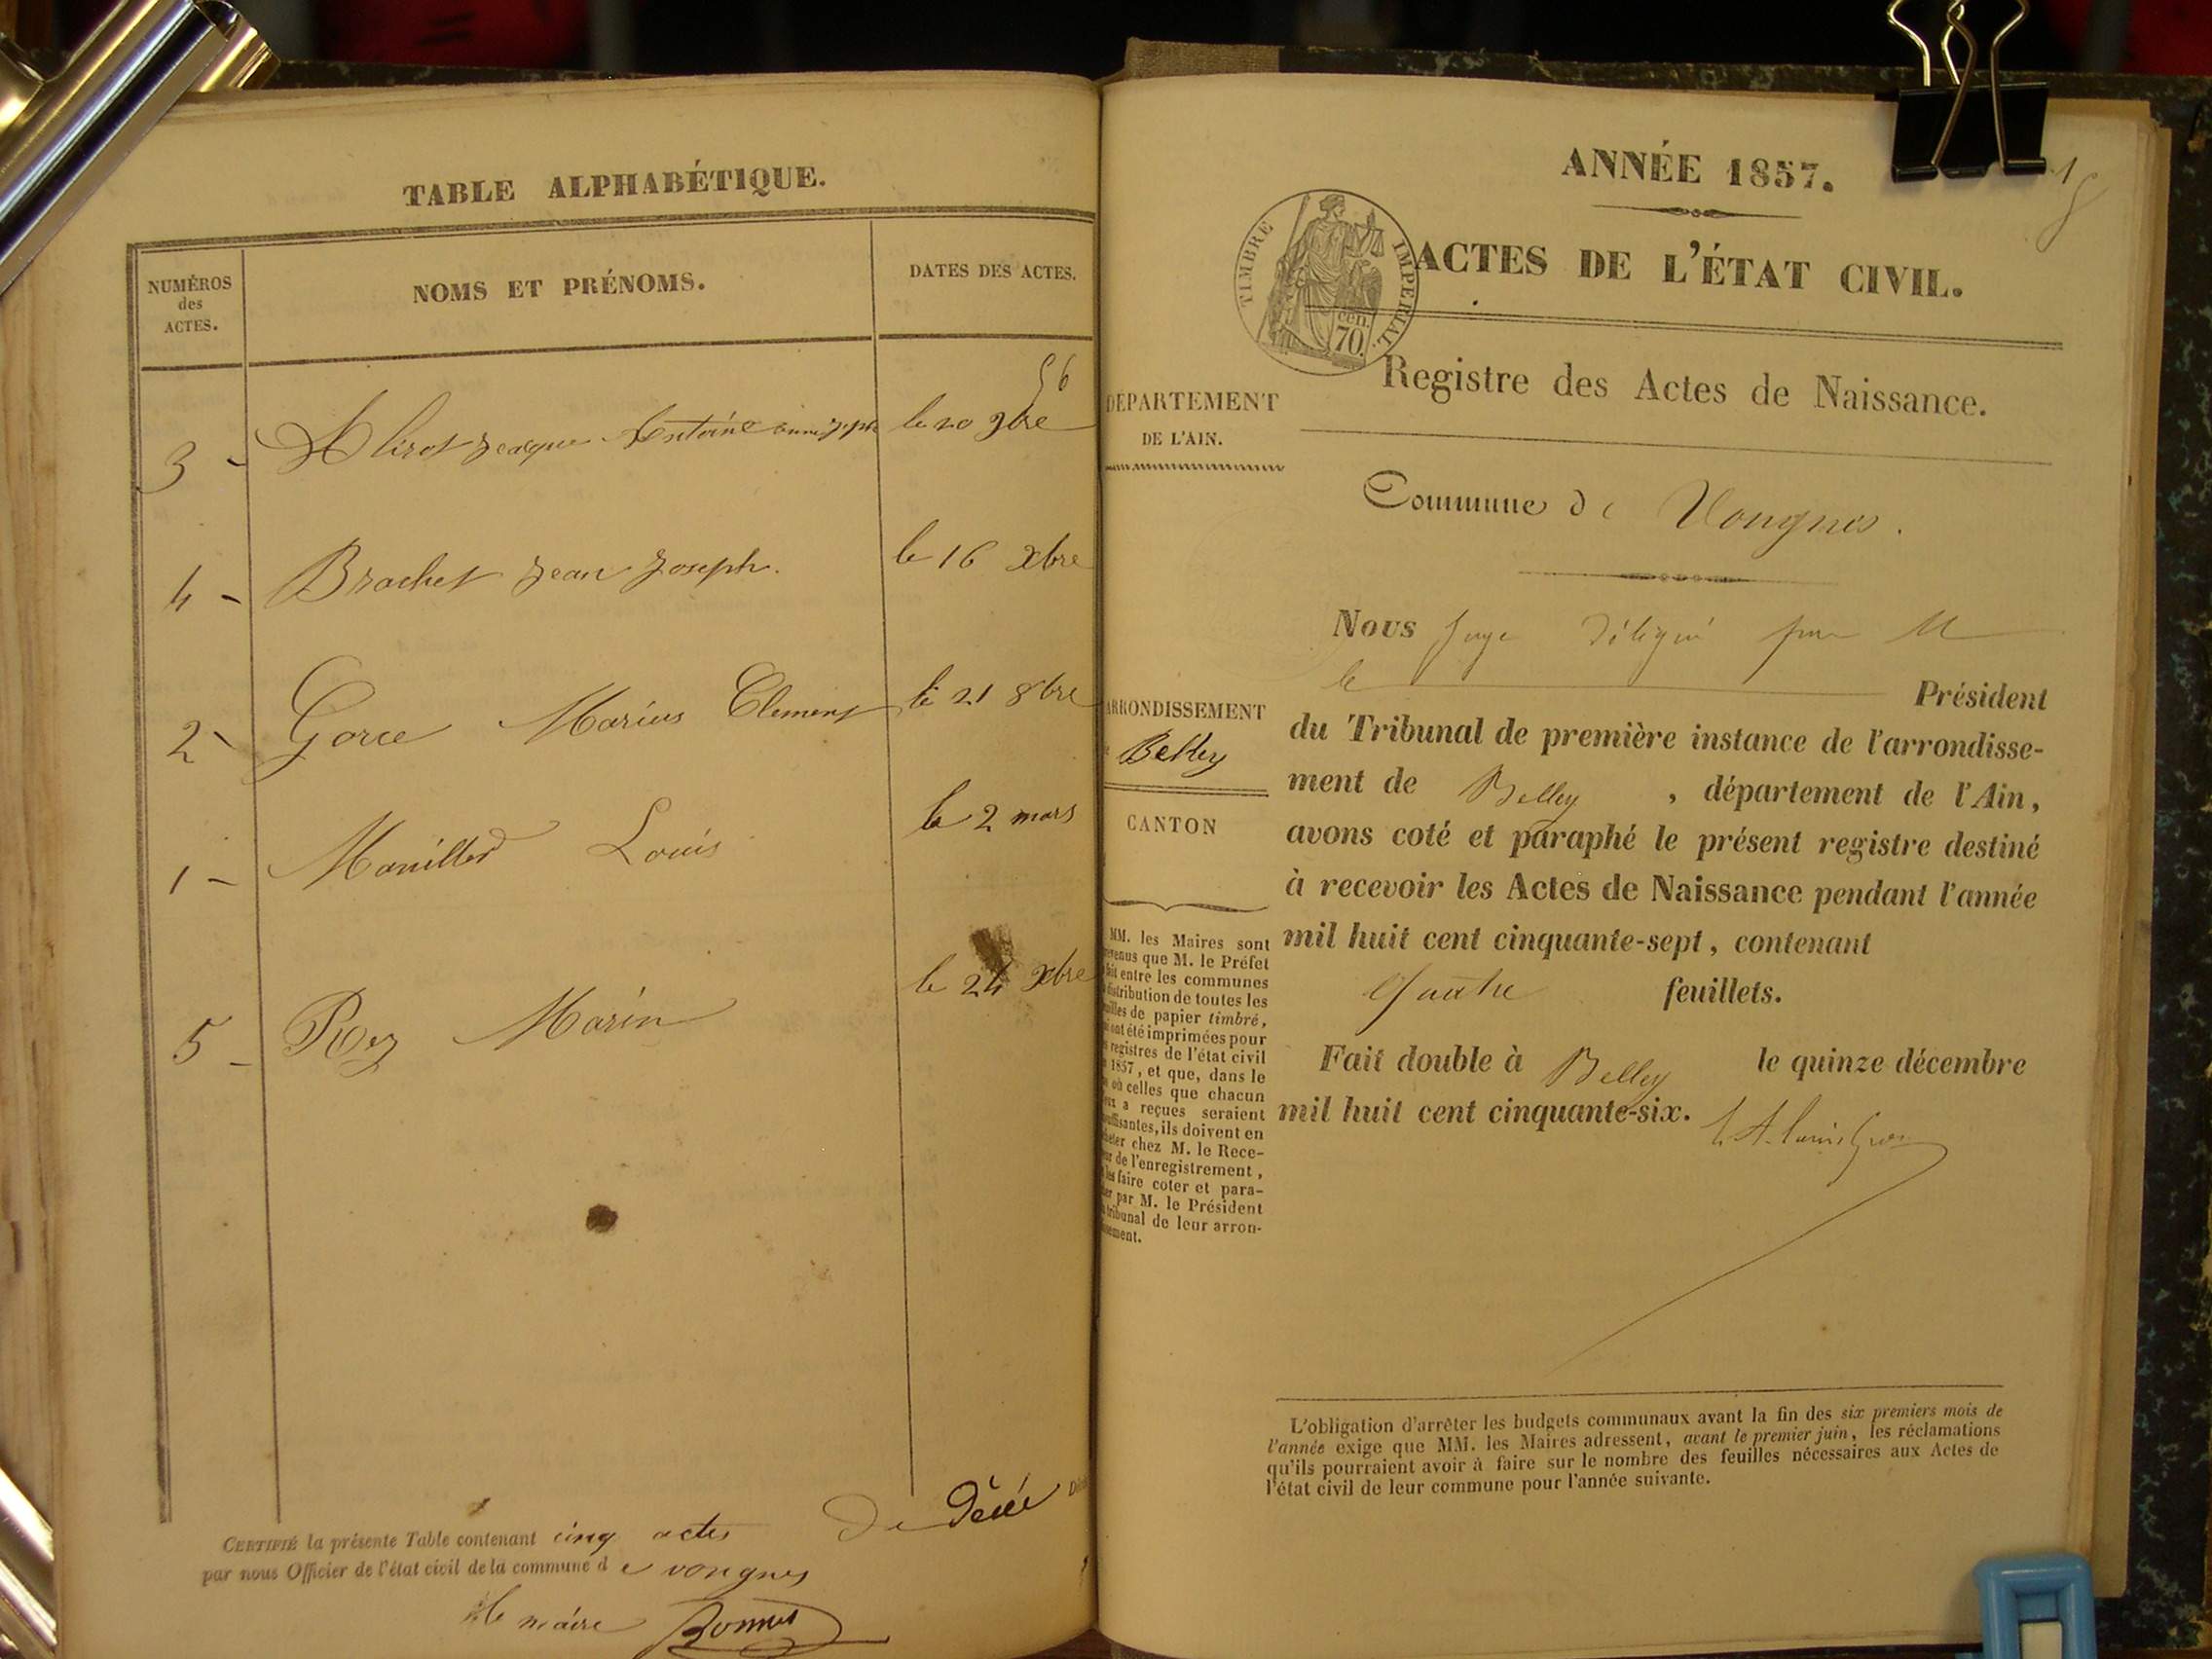 TABLE ALPHABÉTIQUE.
NUMÉROS
des
ACTES.
NOMS ET PRÉNOMS.
DATES DES ACTES.
56
3 - Antoine le 20 9bre
4 - Brachet Jean Joseph. le 16 Xbre
2 - Gorce Marius Clement le 21 8bre
1 - Louis le 2 mars
5 - Rey Marin le 24 Xbre
CERTIFIÉ la présente Table contenant cinq actes De Décé
par nous Officier de l'état civil de la commune d e vongnes
le maire Bonnet
1
ANNÉE 1857.
TIMBRE IMPERIAL
cen.
70.
ACTES DE L'ÉTAT CIVIL.
Registre des Actes de Naissance.
DÉPARTEMENT
DE L'AIN.
Commune de Vongnes.
ARRONDISSEMENT
Belley
CANTON
MM. les Maires sont
prévenus que M. le Préfet
fait entre les communes
distribution de toutes les
feuilles de papier timbré,
qui ont été imprimées pour
registres de l'état civil
1857, et que, dans le
où celles que chacun
eux a reçues seraient
insuffisantes, ils doivent en
acheter chez M. le Rece-
veur de l'enregistrement,
les faire coter et para-
pher par M. le Président
tribunal de leur arron-
dissement.
Nous Juge délégué par M
le Président
du Tribunal de première instance de l'arrondisse-
ment de Belley, département de l'Ain,
avons coté et paraphé le présent registre destiné
à recevoir les Actes de Naissance pendant l'année
mil huit cent cinquante-sept, contenant
Quatre feuillets.
Fait double à Belley le quinze décembre
mil huit cent cinquante-six.
L'obligation d'arrêter les budgets communaux avant la fin des six premiers mois de
l'année exige que MM. les Maires adressent, avant le premier juin, les réclamations
qu'ils pourraient avoir à faire sur le nombre des feuilles nécessaires aux Actes de
l'état civil de leur commune pour l'année suivante.